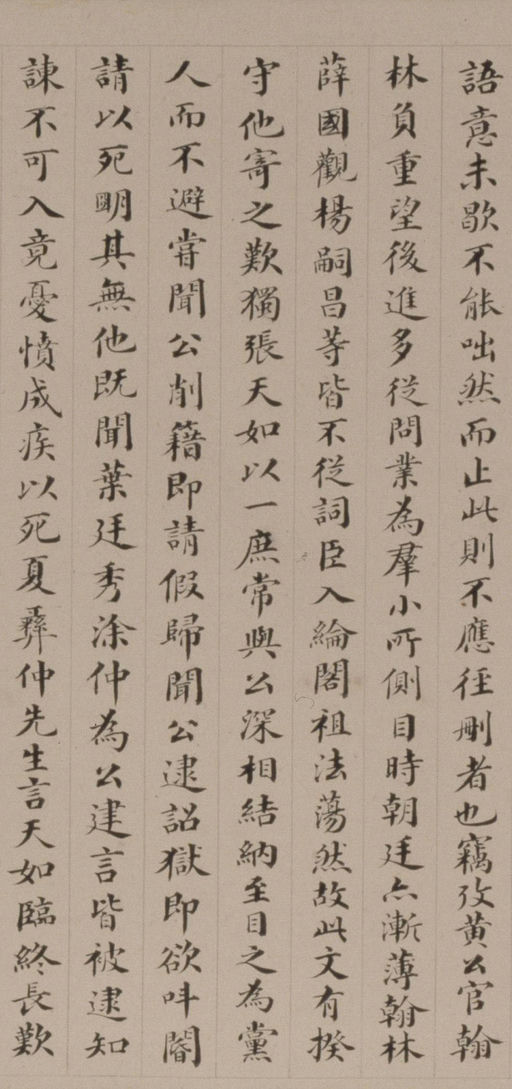 語意未歇不能咄然而止此則不應徑刪者也竊攷黄公官翰
林負重望後進多從問業為羣小所側目時朝廷亦漸薄翰林
薛國觀楊嗣昌等皆不從詞臣入綸閣祖法蕩然故此文有揆
守他寄之歎獨張天如以一庶常與公深相結納至目之為黨
人而不避嘗聞公削籍即請假歸聞公逮詔獄即欲叫閽
請以死明其無他既聞葉廷秀涂仲為公建言皆被逮知
諫不可入竟憂憤成疾以死夏彝仲先生言天如臨終長歎